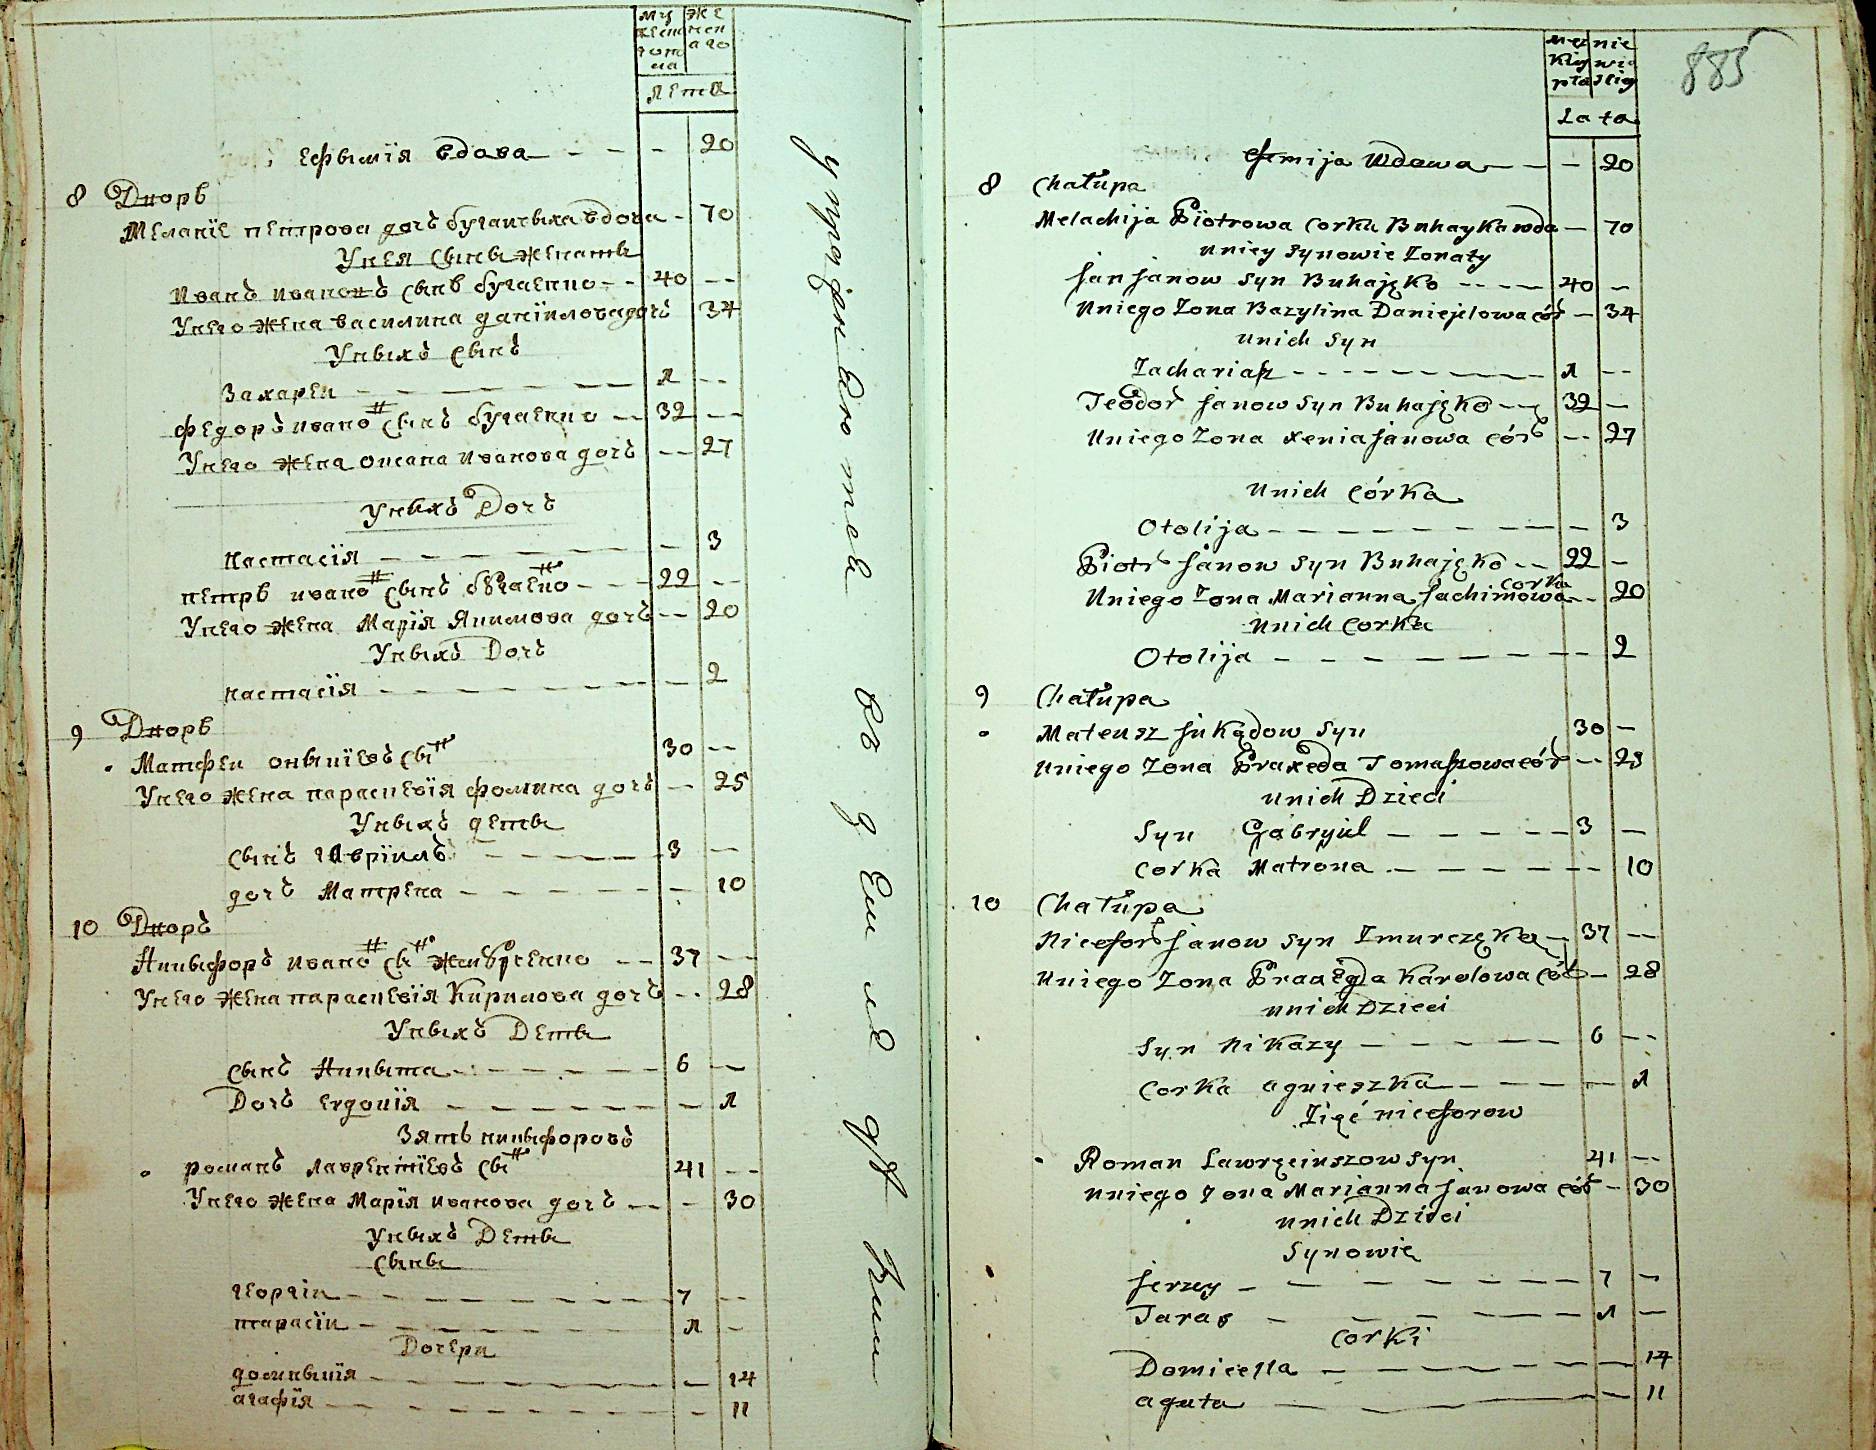 лета
Ефымїя вдова — — — 20
8 Дворъ
Меланїе петрова дочь бугаичыха вдова - 70
Унея сыны женаты
иванъ ивановъ сынъ бугаенко - - 40 --
Унего жена василина данїилова дочь 34
Уныхъ сынъ
Захареи — — — 1 --
федоръ ивано сынъ бугаенко — 32 —
Унего жена оксана иванова дочь -- 27
Уныхъ Дочъ
настасїя — — — 3
петръ ивано сынъ бугаенко - - - 22 --
Унего жена Марїя Якимова дочъ -- 20
Уныхъ Дочъ
настасїя — — — 2
9 Дворъ
Матфеи оныкїевъ сы 30 --
Унего жена параскевїя фомина дочъ — 25
Уныхъ деты
сынъ гаврїилъ — — — 3 —
дочъ Матрена — — — 10
10 Дворъ
Ныкыфоръ ивано сы — 37 --
Унего жена параскевїя Кирилова дочъ -- 28
Уныхъ Деты
сынъ Ныкыта — — — 6 —
Дочъ евдокїя — — — 1
Зять никыфоровъ
романъ лаврентїевъ сы 41 --
Унего жена Марїя иванова дочъ — - 30
Уныхъ Деты
сыны
георгiи — — — 7 --
тарасiи — — — 1 -
Дочери
домныкїя — — — 14
агафїя — — — 11
885
Lata
Efemija Wdowa — — — 20
8 Chałupa
Melachija Piotrowa Corka Buhayka wda — 70
uniey synowie Zonaty
Jan Janow syn Buhajęko -- — — 40 —
Uniego Zona Bazylina Daniejelowa cór — 34
unich syn
Zachariasz — — — 1 --
Teodor Janow syn Buhajęko — 32 —
Uniego Zona xenia Janowa cór -- 27
Unich córka
Otolija — — — 3
Piotr Janow syn Buhajęko -- 22 —
Uniego Zona Marianna Jachimowa corka -- 20
Unich corka
Otolija — — — 2
9 Chałupa
Mateusz syn 30 —
uniego Zona Praxeda Tomaszowa cór -- 25
unich Dzieci
syn Gabryiel — — — 3 —
corka Matrona — — — 10
10 Chałupa
Nicefor Janow syn Zmurczęko — 37 --
uniego Zona Karolowa cór — 28
unich Dzieci
syn Nikazy — — — 6 --
corka agnieszka — — — 1
Zięć niceforow
Roman Lawręciuszow syn 41 --
uniego Zona Marianna Janowa cór — 30
unich Dzieci
Synowie
Jerzey — — — 7 —
Taras — — — 1 —
corki
Domicella — — — 14
aguta — — — 11